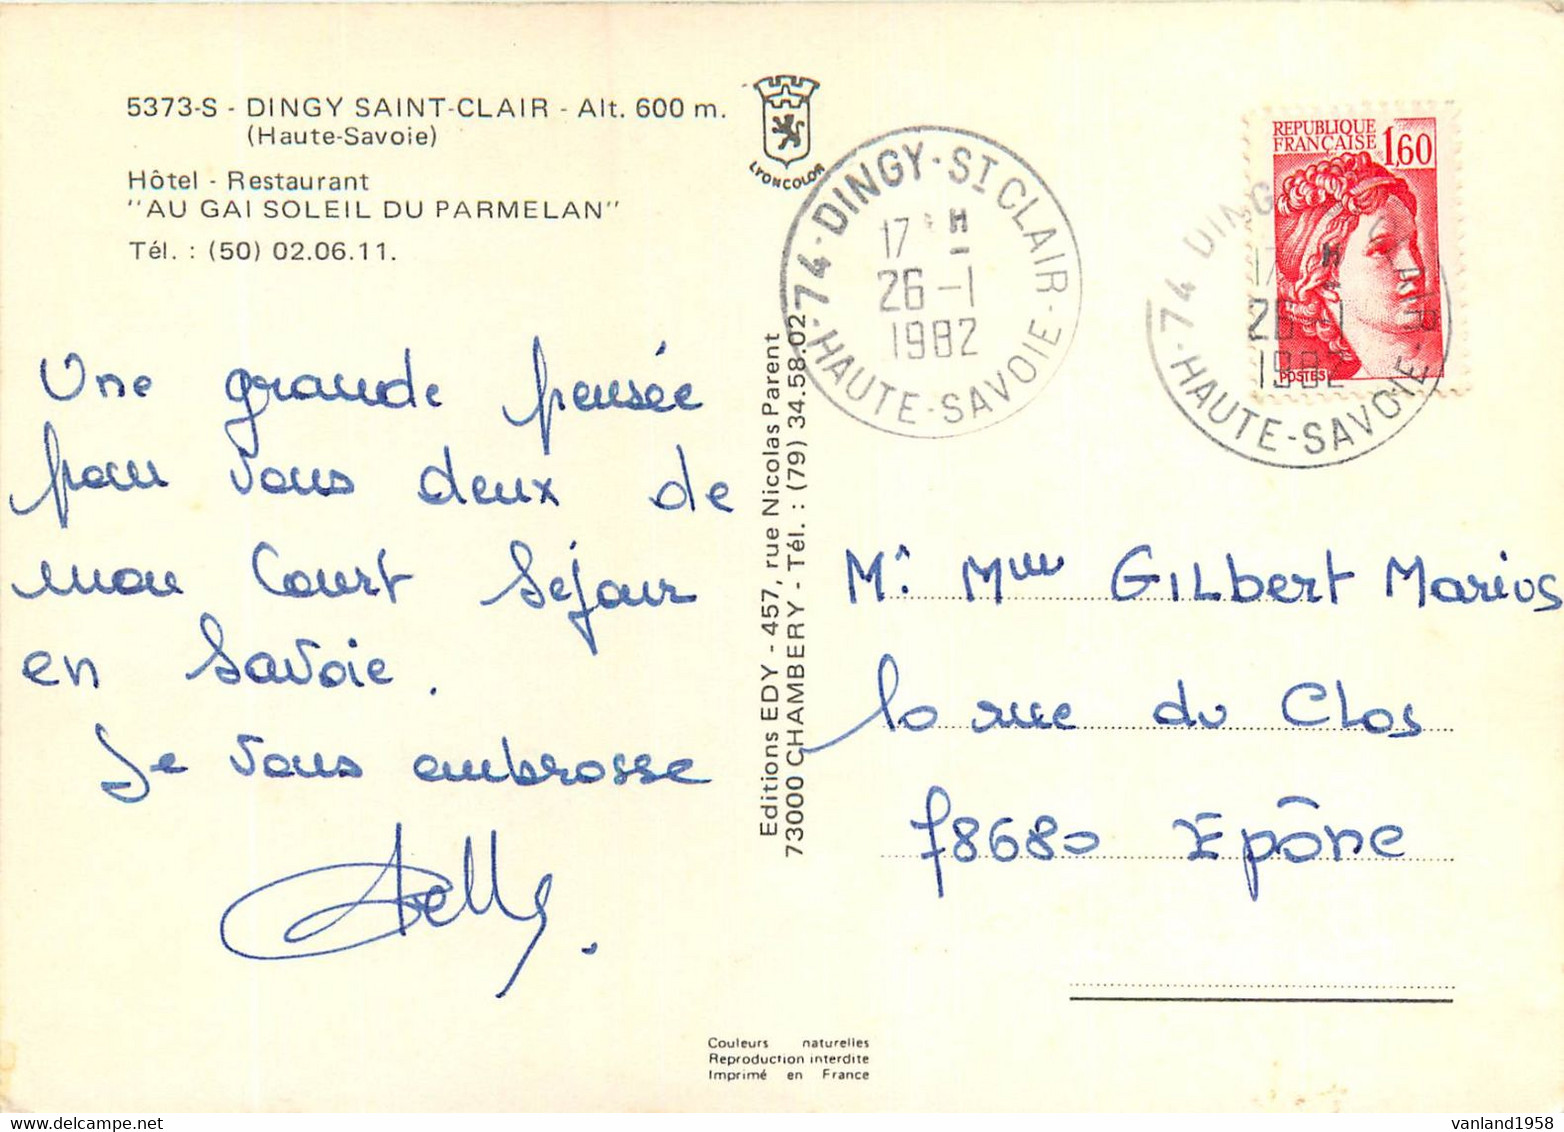 5373-S - DINGY SAINT-CLAIR - Alt. 600 m.
(Haute-Savoie)
Hôtel - Restaurant
"AU GAI SOLEIL DU PARMELAN"
Tél. : (50) 02.06.11.
LYONCOLOR
74 - DINGY - ST CLAIR -
17 H
26 - 1
1982
- HAUTE-SAVOIE -
REPUBLIQUE
FRANÇAISE 1,60
POSTES
74 DINGY
17 H
26 - 1
1982
- HAUTE-SAVOIE -
Une grande pensée
pour vous deux de
mon Court Séjour
en Savoie.
Je vous embrasse
Editions EDY - 457, rue Nicolas Parent
73000 CHAMBERY - Tél. : (79) 34.58.02
Mr. Mme GILbert Marius
rue du Clos
78680 Epône
Couleurs naturelles
Reproduction interdite
Imprimé en France
vanland1958